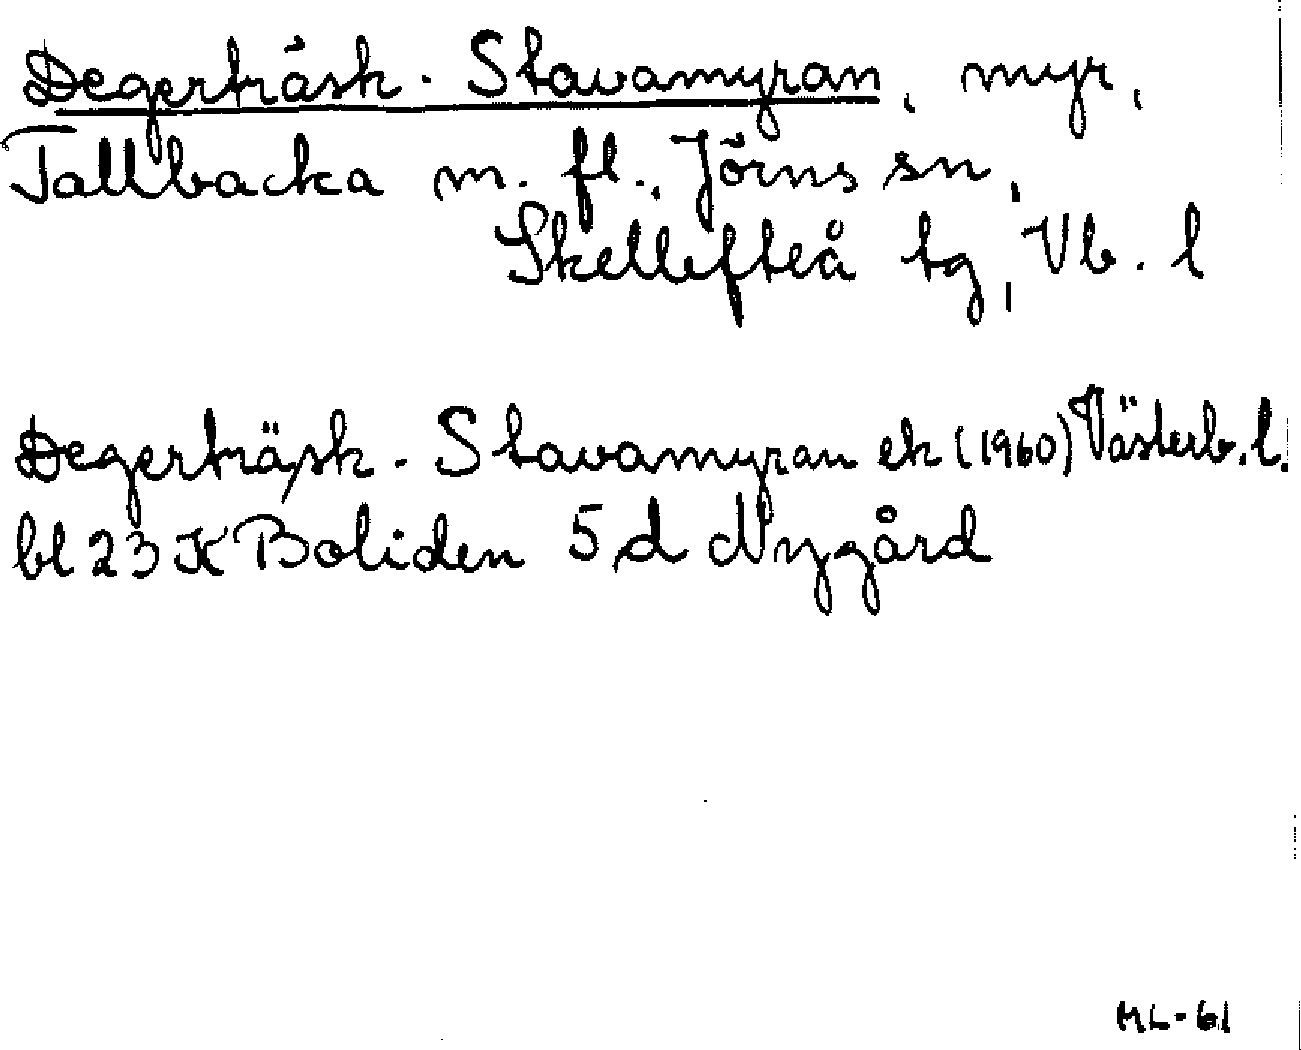 Degerträsk-Stavamyran, myr,
Tallbacka m. fl., Jörns sn,
Skellefteå tg, Vb. l
Degerträsk-Stavamyran ek (1960) Västerb. l.
bl 23 K Boliden 5 d Nygård
ML-61